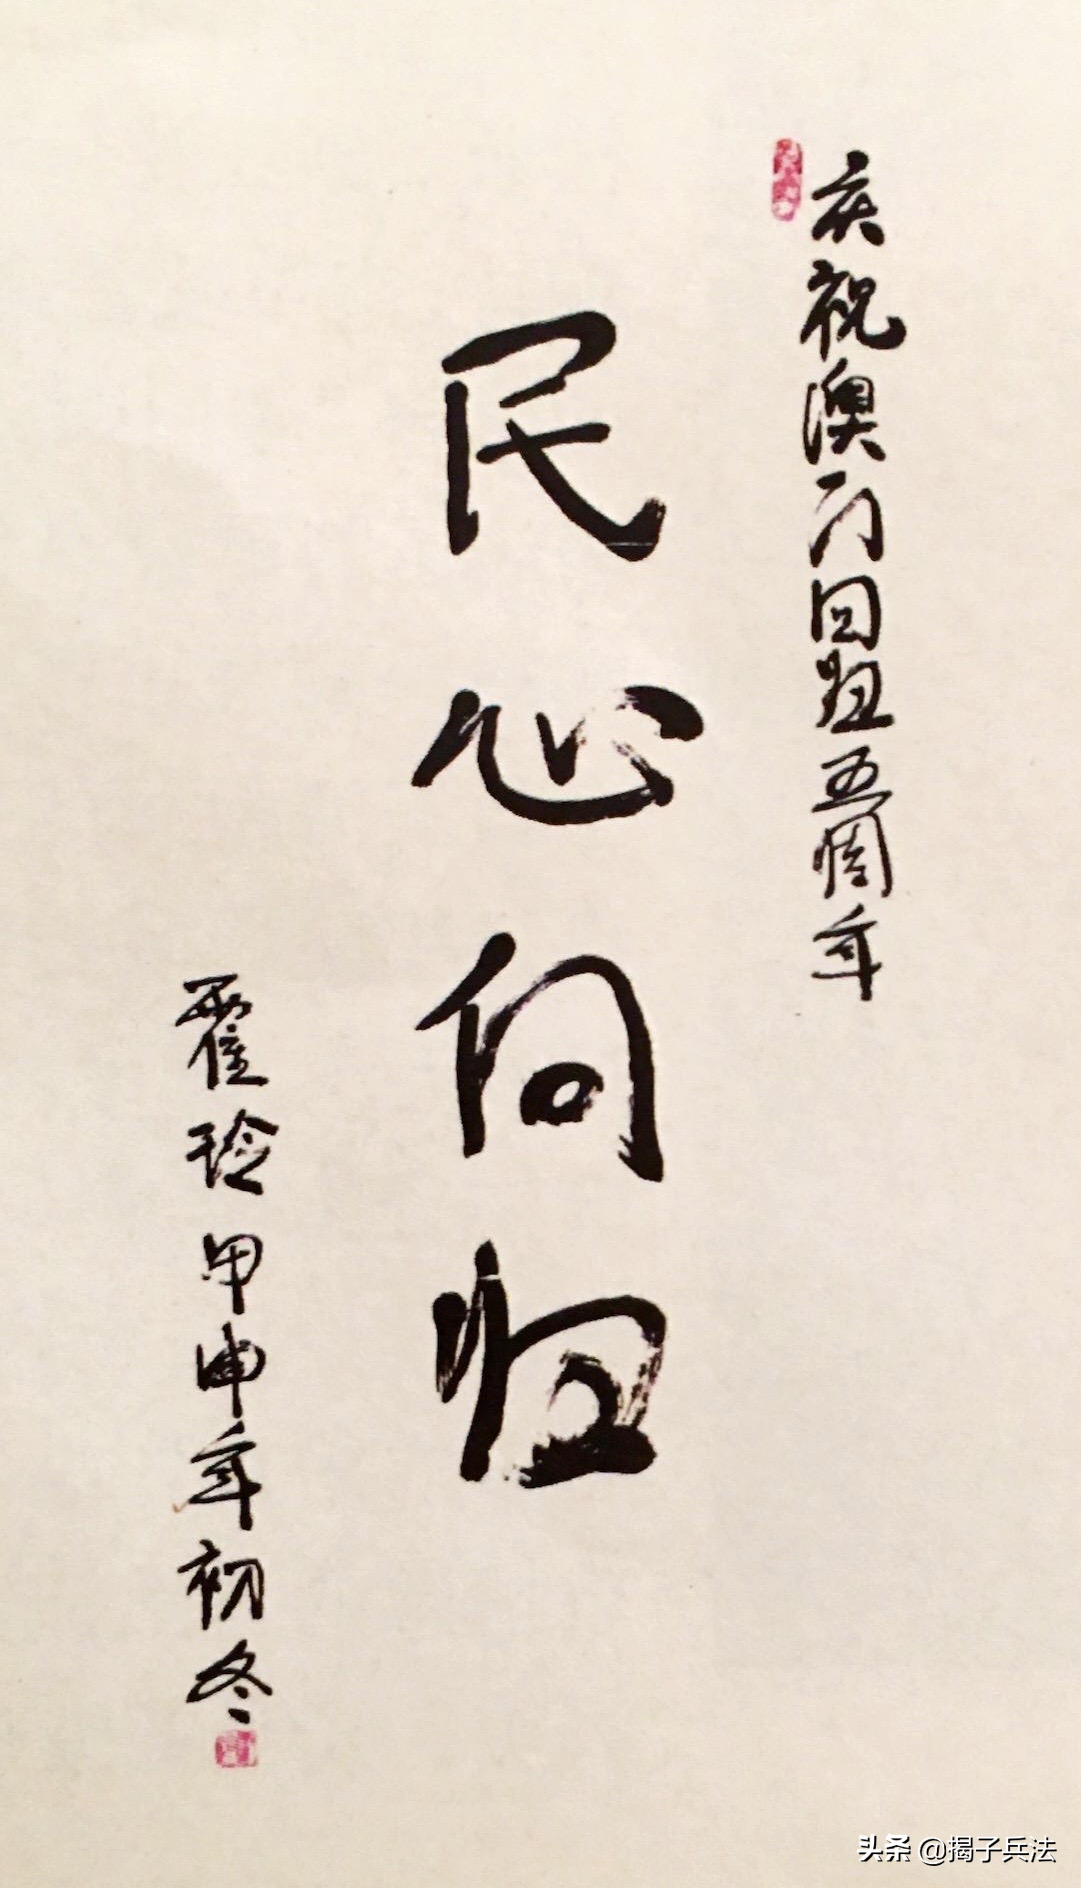 庆祝澳门回归五周年
民心向归
霍玲甲申年初冬
头条 @揭子兵法